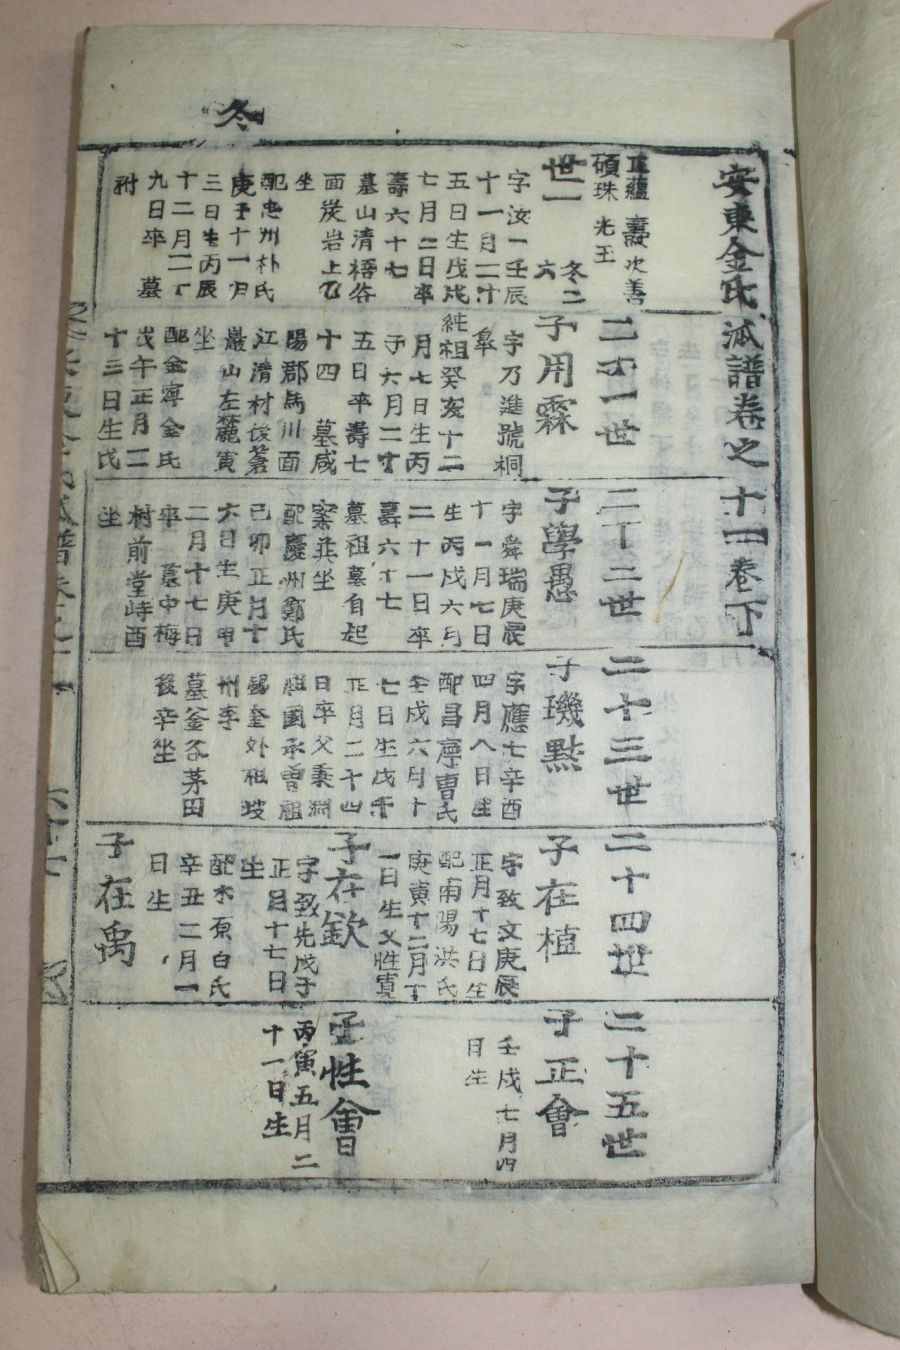 冬
安東金氏派譜卷之十一卷下
正蘊 壽次善
碩珠 光玉
世一 冬二
六
字汝一壬辰
十一月二十
五日生戊戌
七月二日卒
壽六十七
墓山清梧谷
面炭岩上乙
坐
配忠州朴氏
庚子十一月
三日生丙辰
十二月二十
九日卒 墓
祔
二十一世
子用霖
字乃進號桐
皐
純祖癸亥十二
月七日生丙
子六月二十
五日卒壽七
十四 墓咸
陽郡馬川面
江清村後
巖山左麓寅
坐
配金寧金氏
戊午正月二
十三日生
二十二世
子學愚
字舜瑞庚辰
十一月七日
生丙戌六月
二十一日卒
壽六十七
墓祖墓自起
案丑坐
配慶州鄭氏
己卯正月十
六日生庚申
二月十七日
卒 墓中梅
村前堂峙酉
坐
二十三世
子璣點
字應七辛酉
四月八日生
配昌寧曺氏
壬戌六月十
七日生戊午
正月二十四
日卒父秉淵
祖國承曾祖
錫奎外祖坡
州李
墓釜谷茅田
後辛坐
二十四世
子在植
字致文庚辰
正月十七日生
配南陽洪氏
庚寅十二月十
一日生父性寬
子在欽
字致先戊子
正月十七日
生
配水原白氏
辛丑二月一
日生
子在禹
二十五世
子正會
壬戌七月四
日生
子性會
丙寅五月二
十一日生